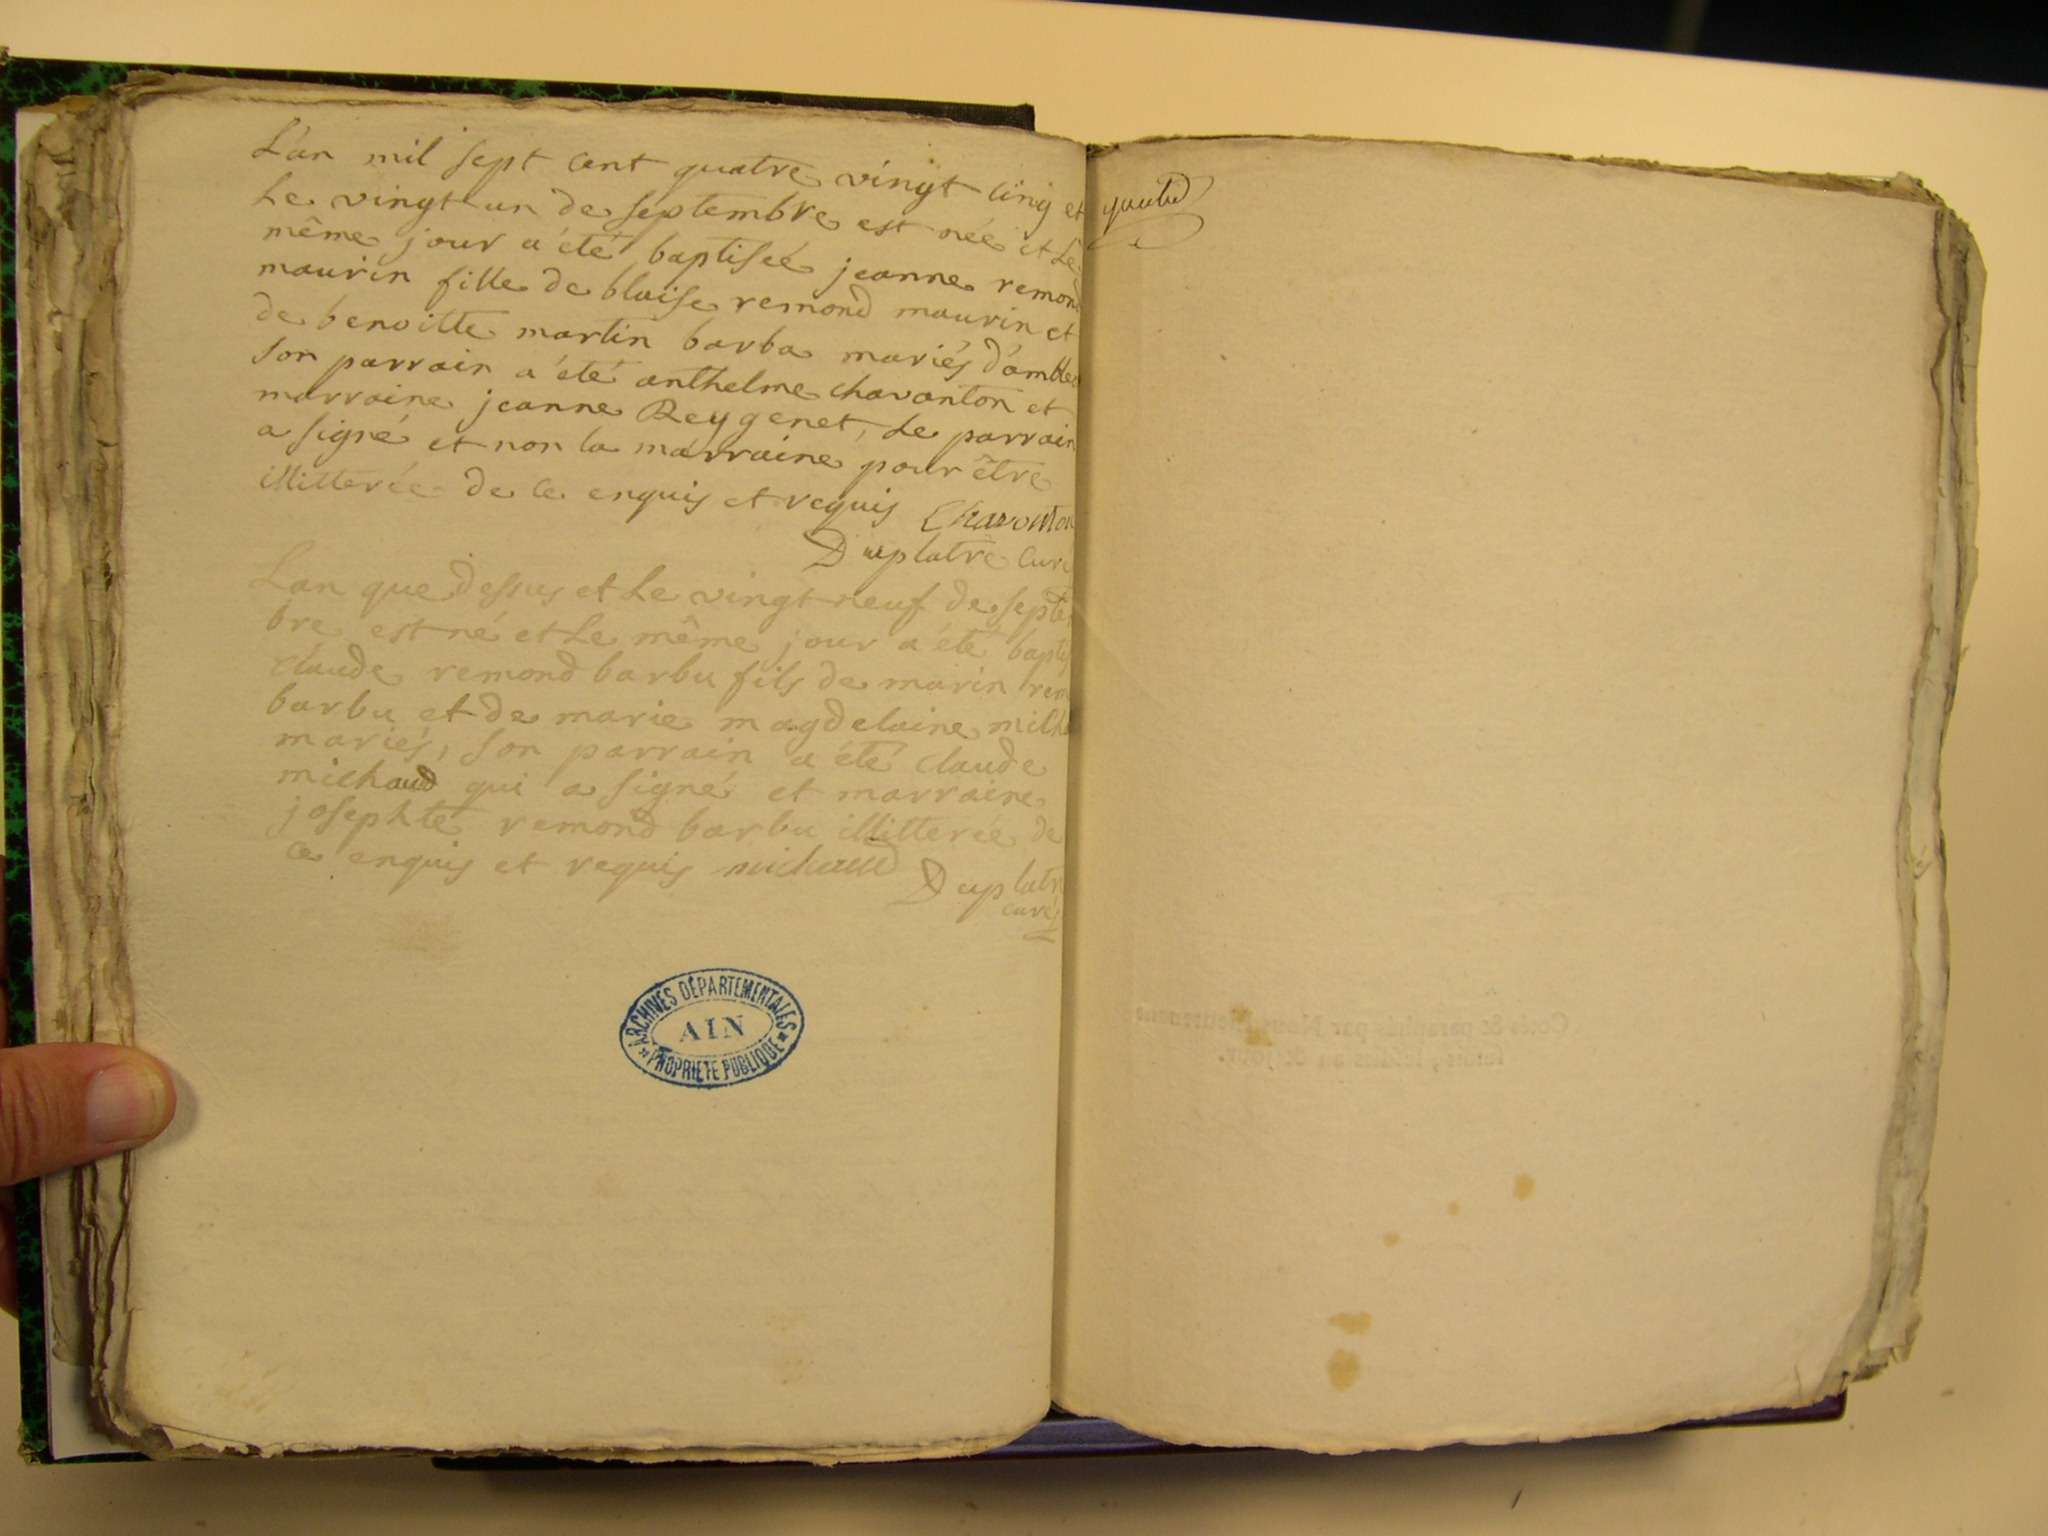 L'an mil sept cent quatre vingt cinq et
Le vingt un de septembre est née et Le
même jour a été baptisée jeanne remond
maurin fille de blaise remond maurin et
de benoitte martin barba mariés
Son parrain a été anthelme chavanton et
marraine jeanne Reygenet, Le parrain
a signé et non la marraine pour être
illitterée de ce enquis et requis Chavonton
Duplatre Curé
L'an que dessus et Le vingt neuf de septe
bre est né et Le même jour a été baptis
claude remond barbu fils de marin rem
barbu et de marie magdelaine micha
mariés, son parrain a été claude
michaud qui a signé et marraine
josephte remond barbu illitterée de
ce enquis et requis michaud
Duplatre
curé
ARCHIVES DÉPARTEMENTALES
AIN
PROPRIÉTÉ PUBLIQUE